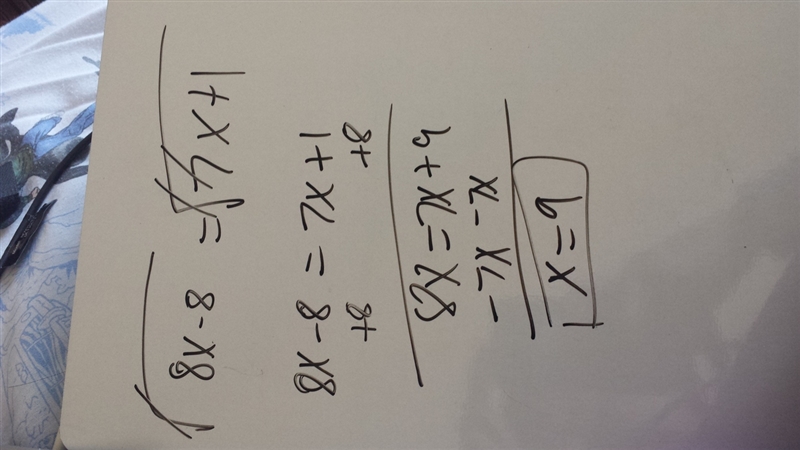 √8x-8 = √7x+1
8x-8 = 7x+1
+8 +8
8x = 7x+9
-7x -7x
x=9